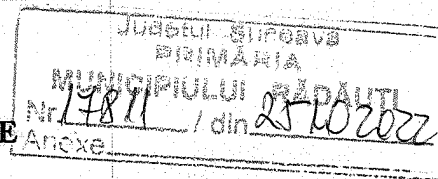 Județul Suceava
PRIMĂRIA
MUNICIPIULUI RĂDĂUȚI
Nr. 17811 / din 25 10 2022
E Anexe